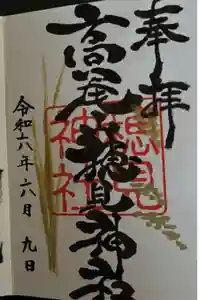 奉拝
高尾穂見神社
穂見
神社
令和六年六月九日